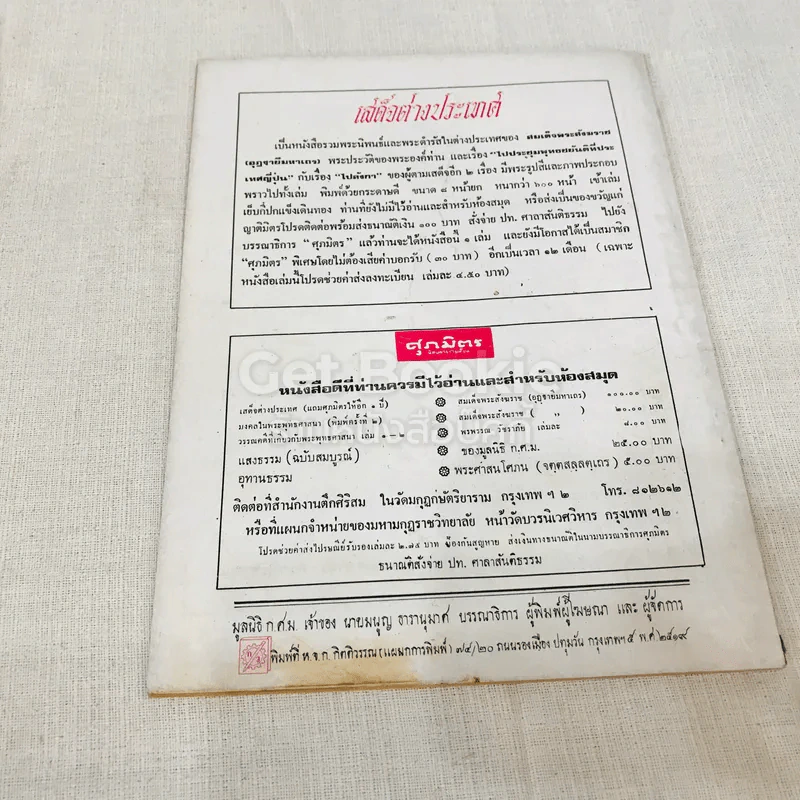 เสด็จต่างประเทศ
เป็นหนังสือรวมพระนิพนธ์และพระดำรัสในต่างประเทศของ สมเด็จพระสังฆราช
(อุฏฐายีมหาเถร) พระประวัติของพระองค์ท่าน และเรื่อง "ไปประชุมพุทธชยันตีที่ประ
เทศญี่ปุ่น" กับเรื่อง "ไปลังกา" ของผู้ตามเสด็จอีก ๒ เรื่อง มีพระรูปสี่และภาพประกอบ
พราวไปทั้งเล่ม พิมพ์ด้วยกระดาษดี ขนาด ๘ หน้ายก หนากว่า ๖๐๐ หน้า เข้าเล่ม
เย็บกี่ปกแข็งเดินทอง ท่านที่ยังไม่มีไว้อ่านและสำหรับห้องสมุด หรือส่งเป็นของขวัญแก่
ญาติมิตรโปรดติดต่อพร้อมส่งธนาณัติเงิน ๑๐๐ บาท สั่งจ่าย ปท. ศาลาสันติธรรม ไปยัง
บรรณาธิการ "ศุภมิตร" แล้วท่านจะได้หนังสือนี้ ๑ เล่ม และยังมีโอกาสได้เป็นสมาชิก
"ศุภมิตร" พิเศษโดยไม่ต้องเสียค่าบอกรับ (๓๐ บาท) อีกเป็นเวลา ๑๒ เดือน (เฉพาะ
หนังสือเล่มนี้โปรดช่วยค่าส่งลงทะเบียน เล่มละ ๔.๕๐ บาท)
ศุภมิตร
หนังสือดีที่ท่านควรมีไว้อ่านและสำหรับห้องสมุด
เสด็จต่างประเทศ (แถมศุภมิตรให้อีก ๑ ปี) สมเด็จพระสังฆราช (อุฏฐายีมหาเถร) ๑๐๐.๐๐ บาท
มงคลในพระพุทธศาสนา (พิมพ์ครั้งที่ ๒) สมเด็จพระสังฆราช ( ,, ) ๒๐.๐๐ บาท
วรรณคดีที่เกี่ยวกับพระพุทธศาสนา เล่ม ๑-๒ พรพรรณ วัชราภัย เล่มละ ๘.๐๐ บาท
แสงธรรม (ฉบับสมบูรณ์) ของมูลนิธิ ก.ศ.ม. ๒๕.๐๐ บาท
อุทานธรรม พระศาสนโศภน (จตฺตสลฺลตฺเถร) ๕.๐๐ บาท
ติดต่อที่สำนักงานตึกศิริสม ในวัดมกุฎกษัตริยาราม กรุงเทพ ฯ ๒ โทร. ๘๑๒๖๑๒
หรือที่แผนกจำหน่ายของมหามกุฎราชวิทยาลัย หน้าวัดบวรนิเวศวิหาร กรุงเทพ ฯ ๒
โปรดช่วยค่าส่งไปรษณีย์รับรองเล่มละ ๒.๗๕ บาท ป้องกันสูญหาย ส่งเงินทางธนาณัติในนามบรรณาธิการศุภมิตร
ธนาณัติสั่งจ่าย ปท. ศาลาสันติธรรม
มูลนิธิ ก.ศ.ม. เจ้าของ นายมนูญ ธารานุมาศ บรรณาธิการ ผู้พิมพ์ผู้โฆษณา และ ผู้จัดการ
พิมพ์ที่ ห.จ.ก. กิตติวรรณ (แผนกการพิมพ์) ๗๔/๒๐ ถนนรองเมือง ปทุมวัน กรุงเทพฯ ๕ พ.ศ. ๒๕๑๙
Get Bookie